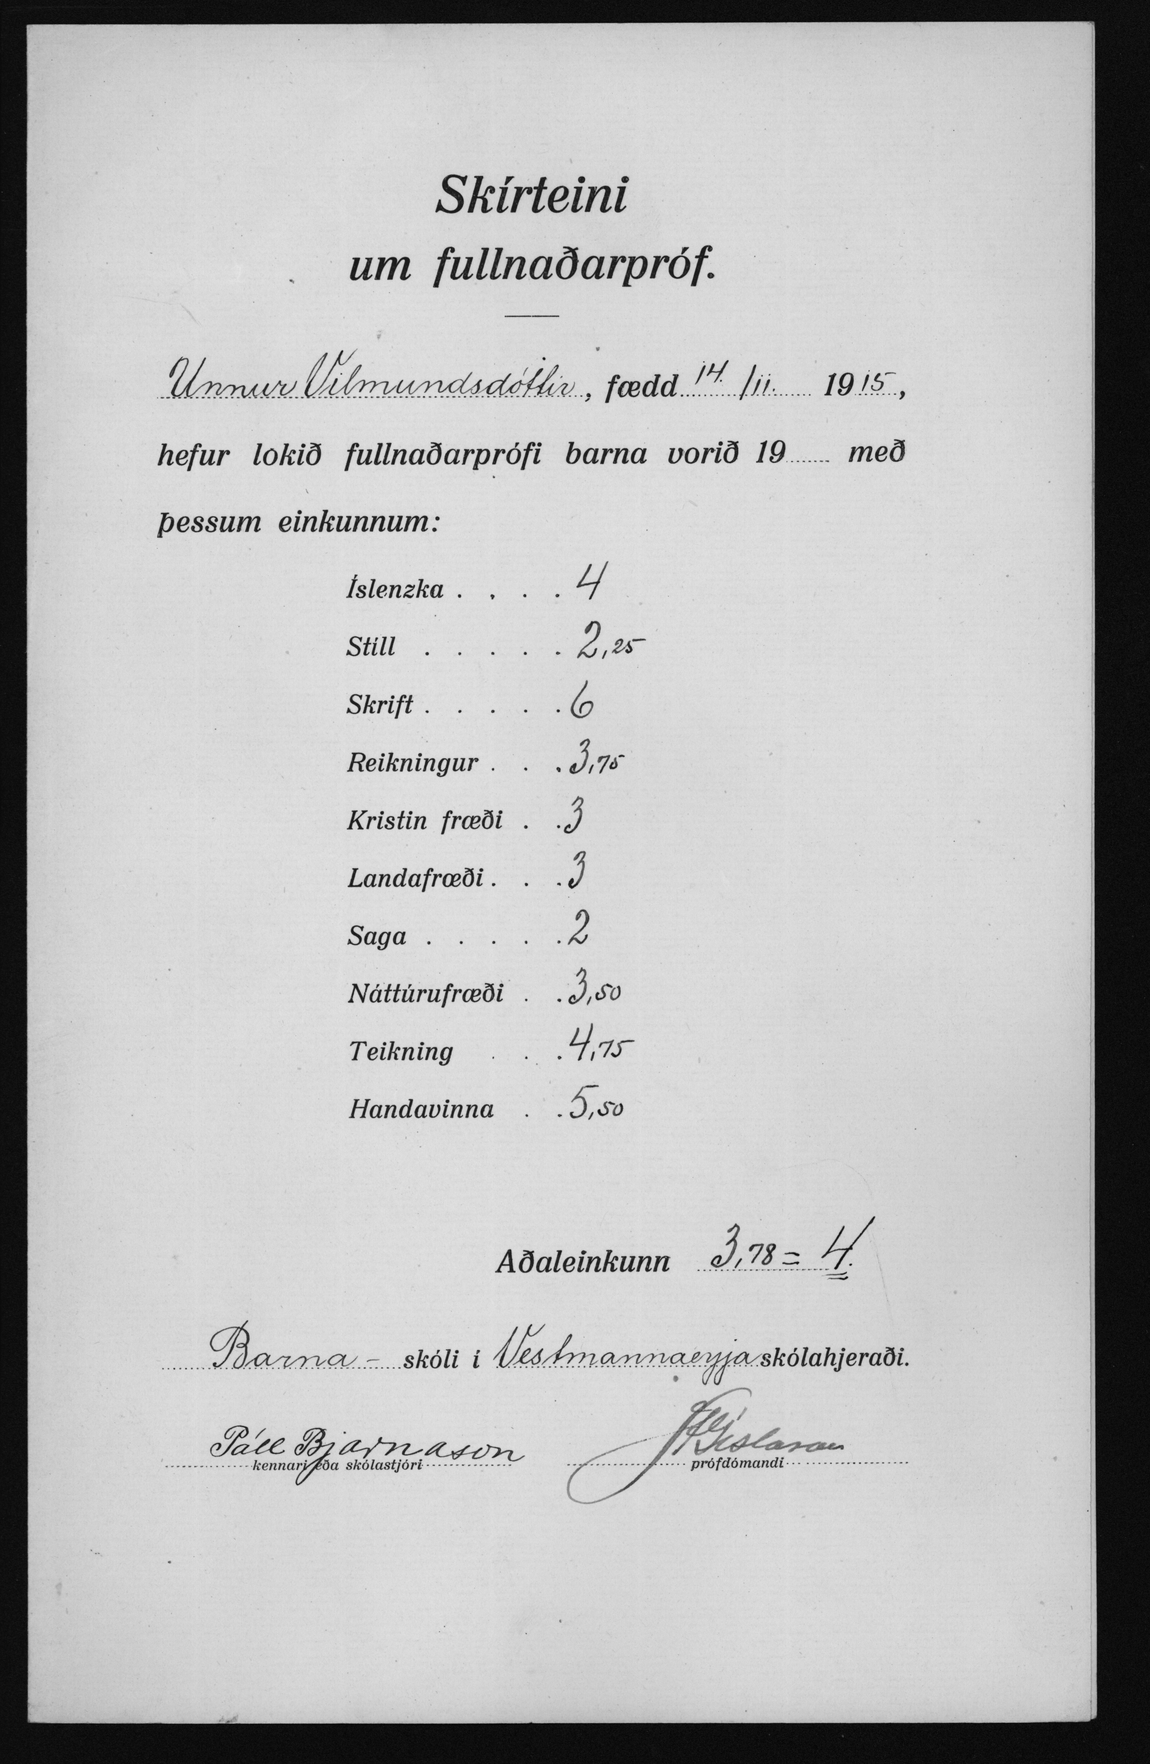 Skírteini
um fullnaðarpróf.
Unnur Vilmundsdóttir, fædd 14. /11. 1915,
hefur lokið fullnaðarprófi barna vorið 19 með
þessum einkunnum:
Íslenzka . . . . 4
Stíll . . . . . 2,25
Skrift . . . . . 6
Reikningur . . . 3,75
Kristin fræði . . 3
Landafræði . . . 3
Saga . . . . . 2
Náttúrufræði . . 3,50
Teikning . . . 4,75
Handavinna . . 5,50
Aðaleinkunn 3,78 = 4.
Barna- skóli í Vestmannaeyja skólahjeraði.
Páll Bjarnason Gíslason
kennari eða skólastjóri prófdómandi